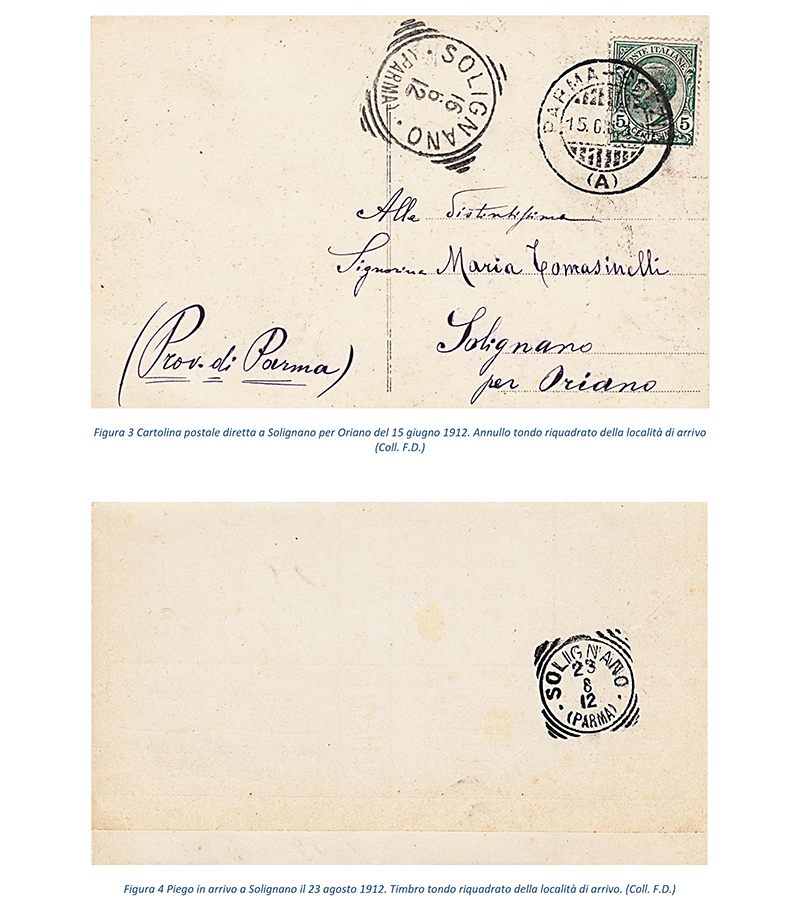 SOLIGNANO
16
6
12
(PARMA)
POSTE ITALIANE
5 5
PARMA
15.6
(A)
Alla Distintissima
Signorina Maria Tomasinelli
Solignano
per Oriano
(Prov. di Parma)
Figura 3 Cartolina postale diretta a Solignano per Oriano del 15 giugno 1912. Annullo tondo riquadrato della località di arrivo
(Coll. F.D.)
SOLIGNANO
23
8
12
(PARMA)
Figura 4 Piego in arrivo a Solignano il 23 agosto 1912. Timbro tondo riquadrato della località di arrivo. (Coll. F.D.)